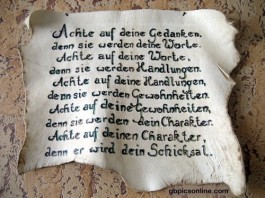 Achte auf deine Gedanken,
denn sie werden deine Worte.
Achte auf deine Worte,
denn sie werden Handlungen.
Achte auf deine Handlungen,
denn sie werden Gewohnheiten.
Achte auf deine Gewohnheiten,
denn sie werden dein Charakter.
Achte auf deinen Charakter,
denn er wird dein Schicksal.
gbpicsonline.com